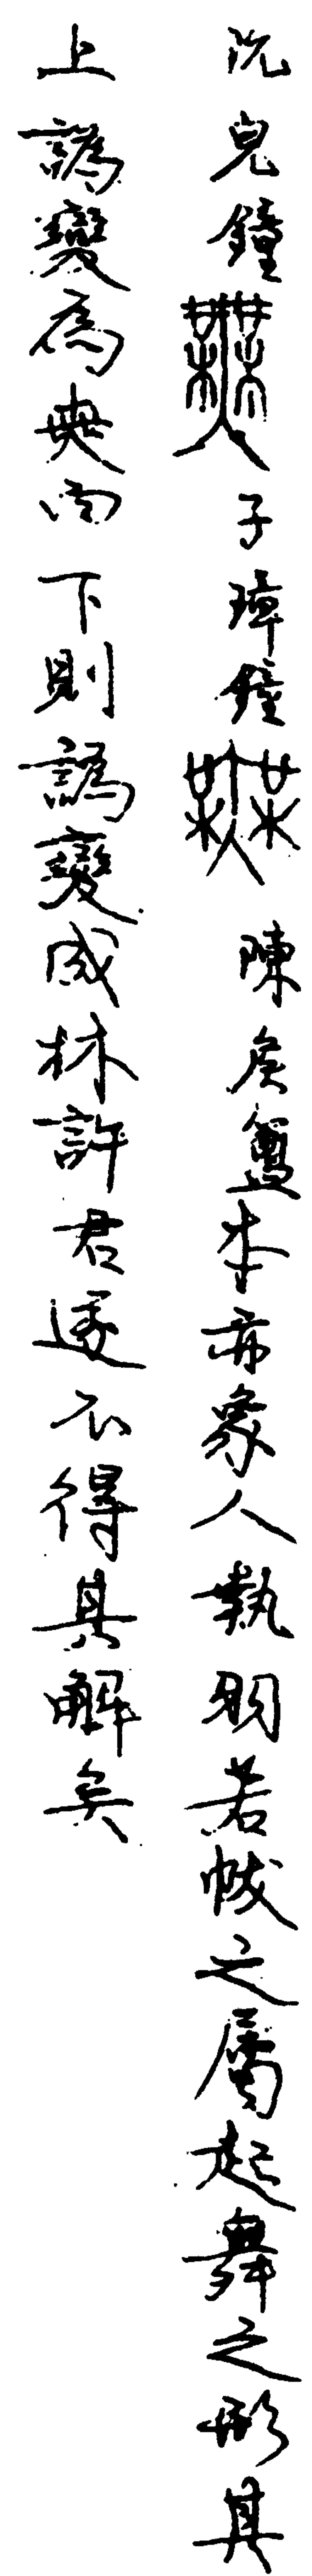 沇兒鐘子璋鐘陳矦本亦象人執羽若帗之屬起舞之形其
上譌變爲而下則譌變成林許君遂不得其解矣